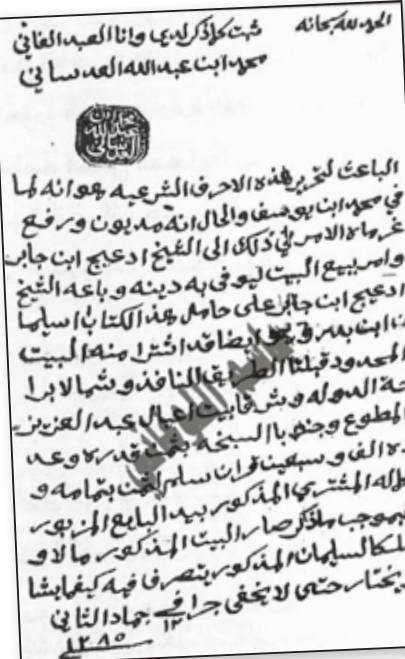 الحمد لله سبحانه
ثبت كلما ذكر لدي وانا العبد الفاني
محمد ابن عبد الله العدساني
الباعث لتحرير هذه الاحرف الشرعيه هو انه لما
في محمد ابن يوسف والحال انه مديون ورفع
غرماه الامر في ذلك الى الشيخ ادعيج ابن جابر
وامر ببيع البيت ليوفى به دينه وباعه الشيخ
ادعيج ابن جابر على حامل هذا الكتاب اسليما
ن ابن بدر وهو ايضا قد اشترا منه البيت
المحدود قبلتا الطريق النافذ وشمالا برا
حة الدوله وشرقا بيت اعيال عبد العزيز
المطوع وجنوبا السبخه بثمن قدره وعد
ده الف وسبعين قران سلم الثمن بتمامه و
كماله المشتري المذكور بيد البايع المزبور
فبموجب ماذكر صار البيت المذكور مالا و
ملكا لسليمان المذكور يتصرف فيه كيفما يشا
ويختار حتى لا يخفى جرا في ١٢ جماد الثاني
١٢٨٥